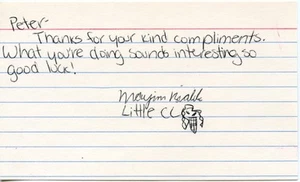 Peter-
Thanks for your kind compliments.
What you're doing sounds interesting so
good luck!
Little CC